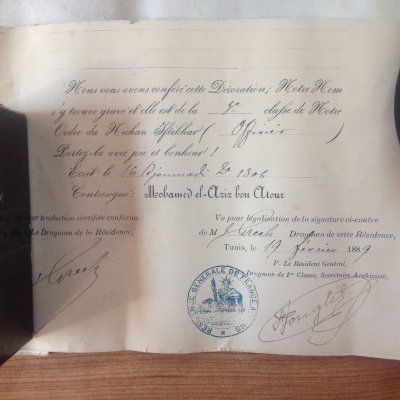 Nous vous avons conféré cette Décoration; Notre Nom
s'y trouve gravé et elle est de la classe de Notre
Ordre du Nichan Iftikhar (Officier)
Portez-la avec joie et bonheur!
Ecrit le 16 Djoumadi 2e 1306
Contresigné: Mohamed el-Aziz bou Atour
pour traduction certifiée conforme:
Le Drogman de la Résidence,
Vu pour légalisation de la signature ci-contre
de M Drogman de cette Résidence.
Tunis, le 19 février 1889
P. Le Résident Général,
Drogman de 1re Classe, Secrétaire Archiviste,
RESIDENCE GENERALE DE FRANCE A TUNIS